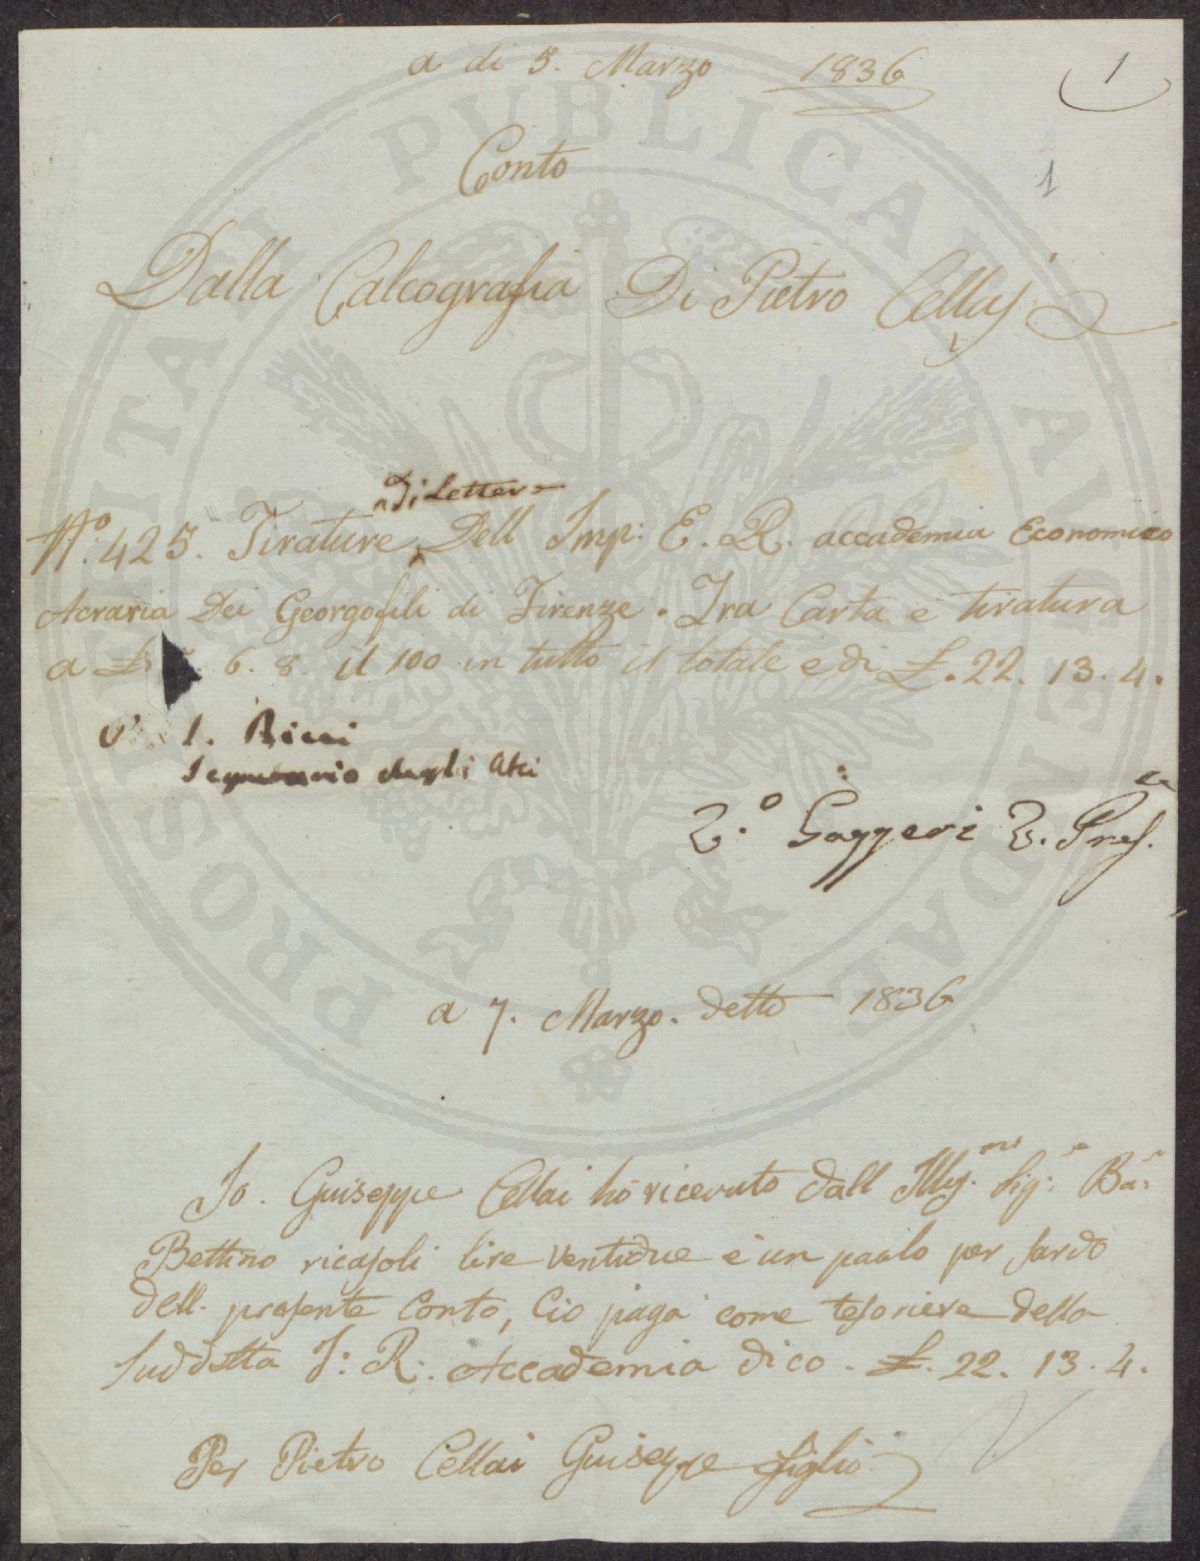 a di 5. Marzo 1836
1
Conto
1
Dalla Calcografia Di Pietro Cellaj
Di Lettere
N.º 425. Tirature Dell Imp: E. R. accademia Economico
Acraria Dei Georgofili di Firenze. Tra Carta e tiratura
a £ 6. 8. il 100 in tutto il totale e di £. 22. 13. 4.
I. Ricci
Segretario degli Atti
V.º Gazzeri V. Pres.te
a 7. Marzo. detto 1836
Io. Guiseppe Cellai ho ricevuto dall Illus.mo Sig.re Ba.e
Bettino ricasoli lire ventidue e un paolo per sardo
dell. presente Conto, Cio paga come tesoriere della
suddetta I: R: Accademia dico. £. 22. 13. 4.
Per Pietro Cellai Guiseppe figlio
PROSPERITATI PUBLICAE AUGENDAE